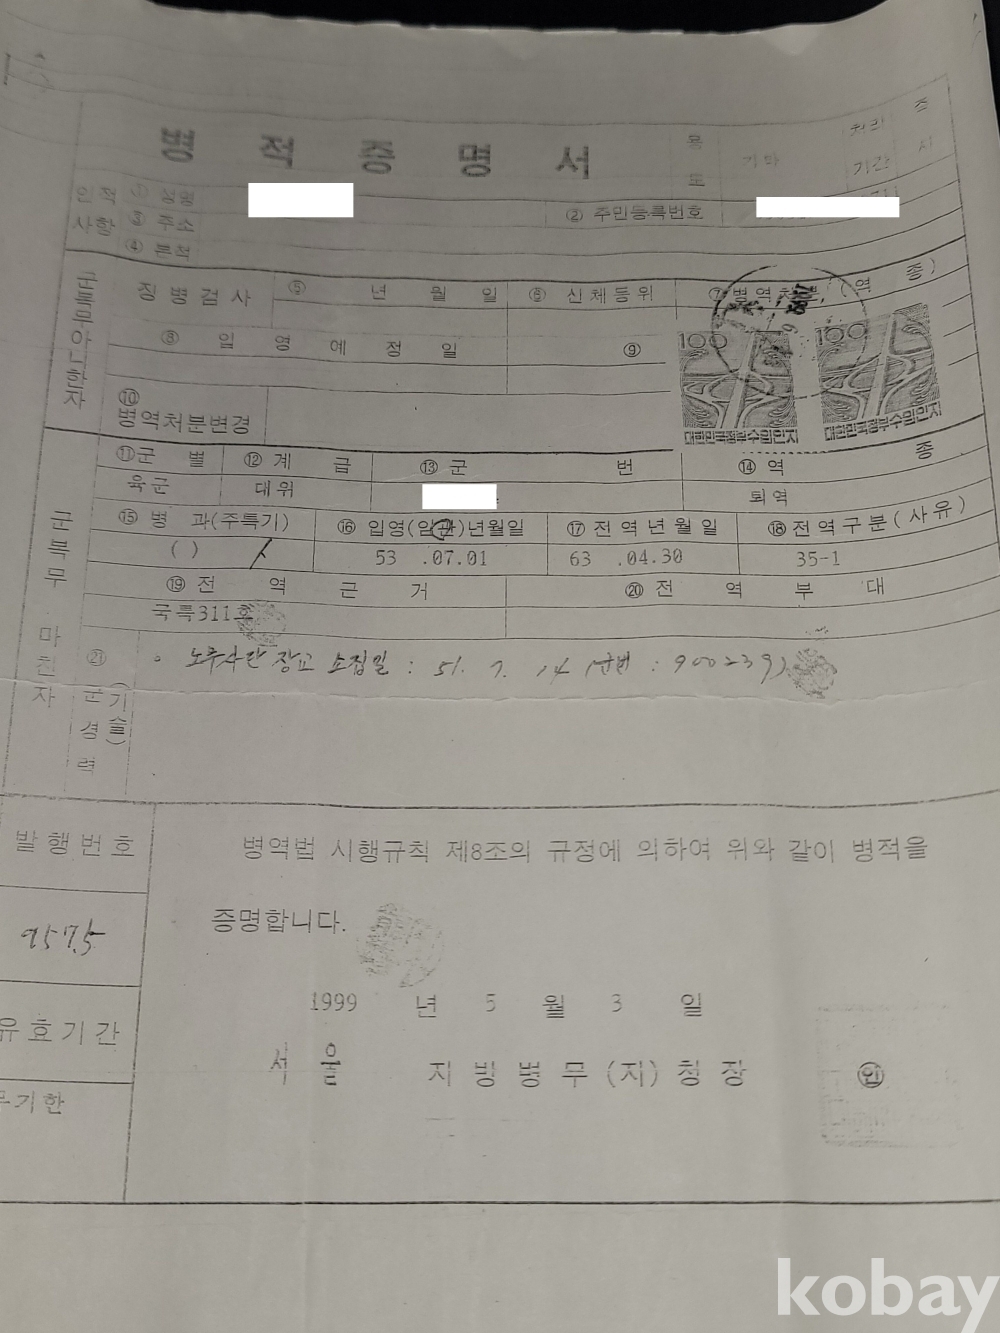 병 적 증 명 서
용 도
기타
처리 기간
즉 시
인적 사항
① 성명
② 주민등록번호
③ 주소
④ 본적
군복무아니한자
징병검사
⑤ 년 월 일
⑥ 신체등위
⑦ 병역처분(역 종)
⑧ 입 영 예 정 일
⑨
100
100
대한민국정부수입인지
대한민국정부수입인지
⑩
병역처분변경
군복무 마친자
⑪ 군 별
⑫ 계 급
⑬ 군 번
⑭ 역 종
육군
대위
퇴역
⑮ 병 과(주특기)
⑯ 입영(임관)년월일
⑰ 전역년월일
⑱ 전역구분(사유)
( )
53 .07.01
63 .04.30
35-1
⑲ 전 역 근 거
⑳ 전 역 부 대
국특311호
㉑ 군 경 력 (기술)
장교 소집일 : 51. 7. 14 (군번 :
발행번호
병역법 시행규칙 제8조의 규정에 의하여 위와 같이 병적을
증명합니다.
9575
1999 년 5 월 3 일
유효기간
서 울 지방병무(지)청장 ㊞
무기한
kobay